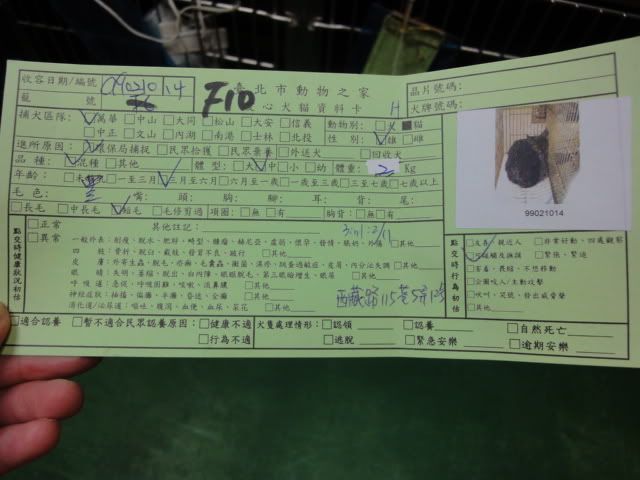 收容日期/編號 990210 14 臺北市動物之家 晶片號碼:
籠 號 F10 心犬貓資料卡 犬牌號碼:
捕犬區隊: □萬華 □中山 □大同 □松山 □大安 □信義 動物別: □犬 ■貓
□中正 □文山 □內湖 □南港 □士林 □北投 性 別: □雄 □雌
進所原因: □環保局捕捉 □民眾拾獲 □民眾棄養 □外送犬 □回收犬
品 種: □混種 □其他 體 型: □大 □中 □小 □幼 體重: 2 Kg
年齡: □一至三月 □三至六月 □六月至一歲 □一歲至三歲 □三至七歲 □七歲以上
毛 色: 黑 嘴: 頭: 腳: 耳: 背: 尾:
□長毛 □中長毛 □短毛 □毛修剪過 項圈: □無 □有 胸背: □無 □有
99021014
點交時健康狀況初估
□正常 其他註記:
□異常 一般外表: 削瘦、脫水、肥胖、畸型、腫瘤、赫尼亞、虛弱、懷孕、發情、脹奶、外傷 □其他
四 肢: 骨折、脫臼、截肢、發育不良、跛行 □其他
皮 膚: 外寄生蟲、脫毛、疥癬、毛囊蟲、黴菌、濕疹、跳蚤過敏症、皮屑、內分泌失調 □其他
眼 睛: 失明、萎縮、脫出、白內障、眼瞼脫毛、第三眼瞼增生、眼屎 □其他
呼 吸 道: 急促、呼吸困難、咳嗽、流鼻膿 □其他
神經症狀: 抽搐、偏癱、半癱、昏迷、全癱 □其他
消化道/泌尿道: 嘔吐、腹瀉、血便、血尿、尿花 □其他
西藏路115巷5弄1號
點交時行為初估
□友善、親近人 □非常好動、四處觀察
□可接觸及撫摸 □緊張、緊迫
□害羞、畏縮、不想移動
□企圖咬人/主動攻擊
□吠叫、哭號、發出威脅聲
□其他
□適合認養 □暫不適合民眾認養原因: □健康不適 □行為不適
犬隻處理情形: □認領 □認養 □自然死亡
□逃脫 □緊急安樂 □逾期安樂